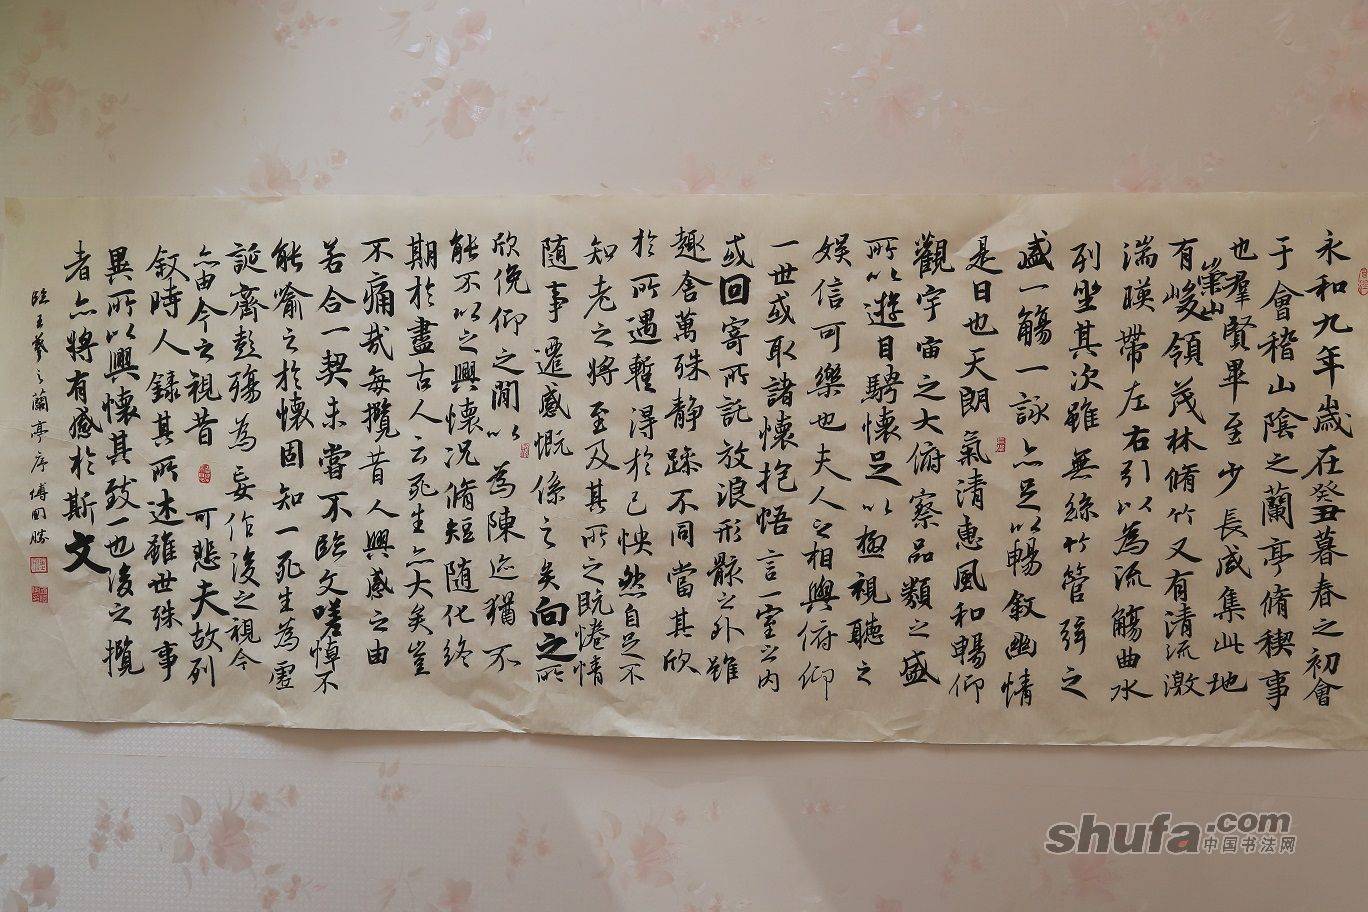 永和九年歲在癸丑暮春之初會
于會稽山陰之蘭亭脩稧事
也羣賢畢至少長咸集此地
有崇山峻領茂林脩竹又有清流激
湍暎帶左右引以為流觴曲水
列坐其次雖無絲竹管弦之
盛一觴一詠亦足以暢敘幽情
是日也天朗氣清惠風和暢仰
觀宇宙之大俯察品類之盛
所以遊目騁懷足以極視聽之
娛信可樂也夫人之相與俯仰
一世或取諸懷抱悟言一室之內
或回寄所託放浪形骸之外雖
趣舍萬殊靜躁不同當其欣
於所遇暫得於己怏然自足不
知老之將至及其所之既惓情
随事遷感慨係之矣向之所
欣俛仰之閒以為陳迹猶不
能不以之興懷況脩短随化終
期於盡古人云死生亦大矣豈
不痛哉每攬昔人興感之由
若合一契未嘗不臨文嗟悼不
能喻之於懷固知一死生為虛
誕齊彭殤為妄作後之視今
亦由今之視昔可悲夫故列
敘時人錄其所述雖世殊事
異所以興懷其致一也後之攬
者亦將有感於斯文
臨王羲之蘭亭序傅國勝
shufa.com
中国书法网